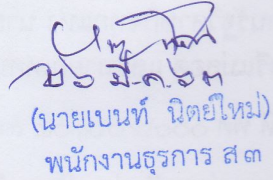 ๒๖ มี.ค. ๖๓
(นายเบนท์ นิตย์ใหม่)
พนักงานธุรการ ส ๓